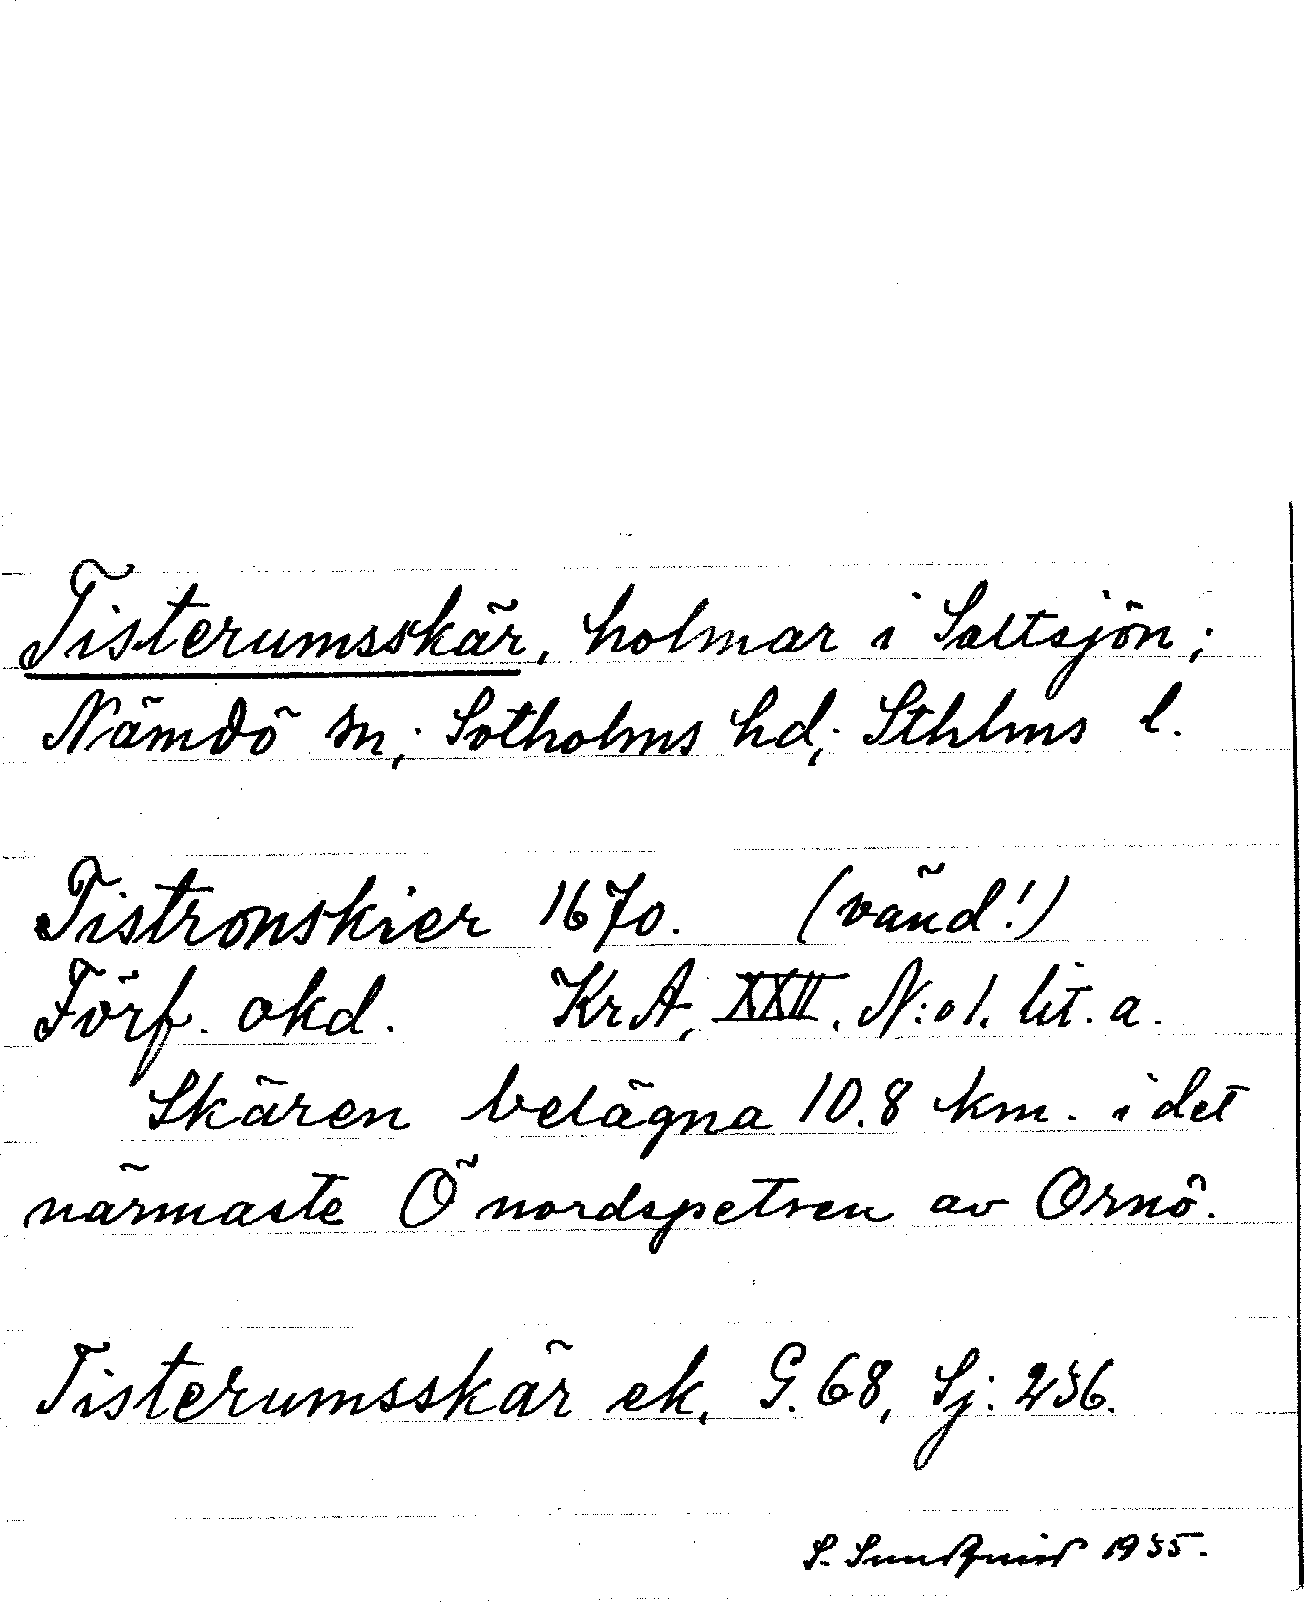 Tisterumsskär, holmar i Saltsjön;
Nämdö sn; Sotholms hd; Sthlms l.
Tistronskier 1670. (vänd!)
Förf. okd. KrA, XXII, N:o 1. lit. a.
Skären belägna 10.8 km. i det
närmaste Ö nordspetsen av Ornö.
Tisterumsskär ek, G. 68, Sj: 236.
S. Sundquist 1935.